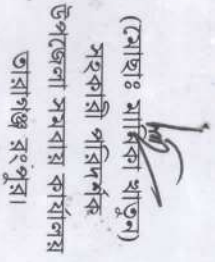 (মোছাঃ মালিকা খাতুন)
সহকারী পরিদর্শক
উপজেলা সমবায় কার্যালয়
তারাগঞ্জ রংপুর।